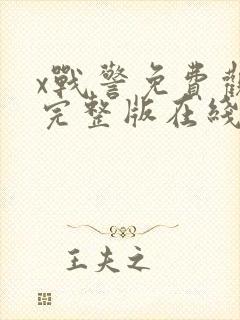 x戰警免費觀
完整版在綫
王夫之